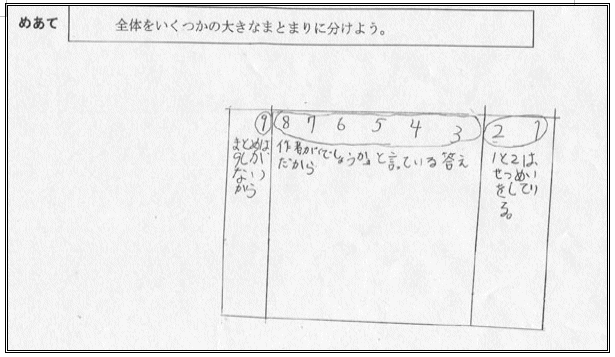 めあて
全体をいくつかの大きなまとまりに分けよう。
1
2
1と2は、
せつめい
をしてい
る。
3
4
5
6
7
8
作者が「でしょうか」と言っている答え
だから
9
まとめは
9しか
ない
から